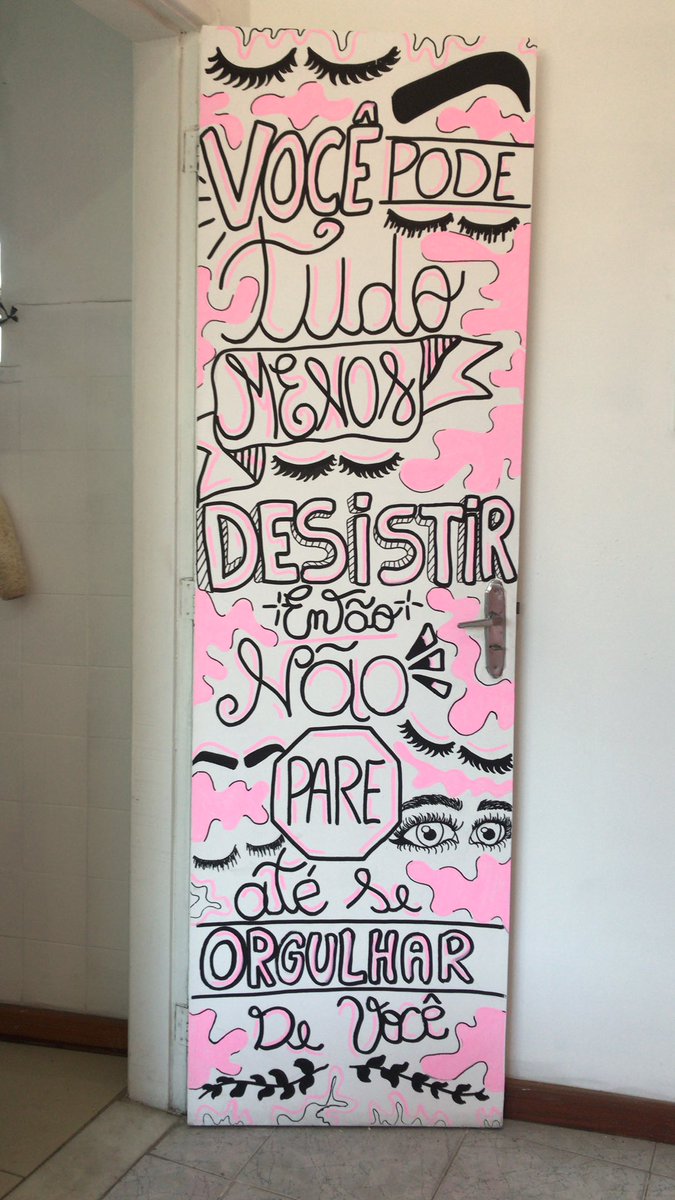 VOCÊ PODE
Tudo
MENOS
DESiSTiR
ENTão
Não
PARE
até se
ORGULHAR
De Você